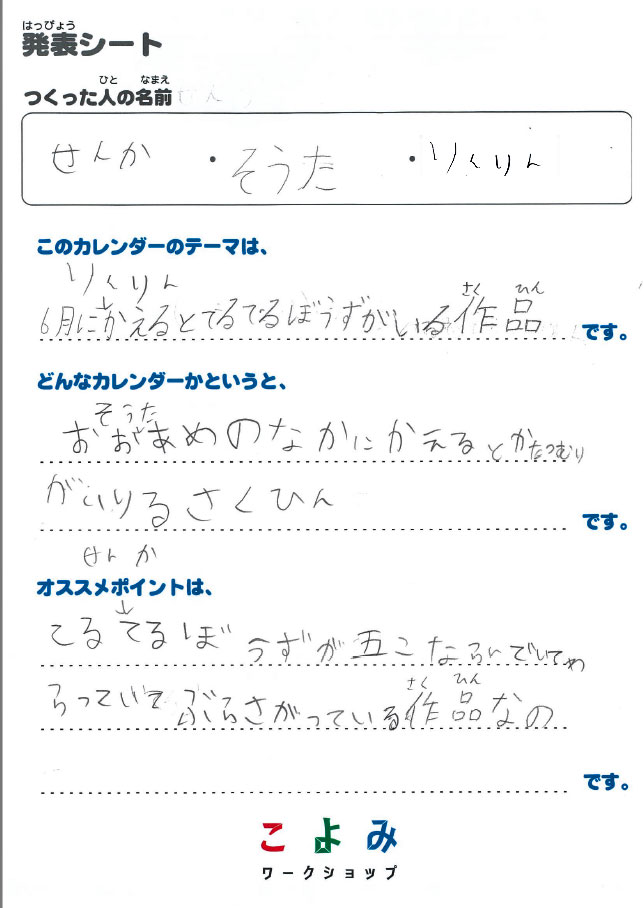 はっぴょう
発表シート
ひと なまえ
つくった人の名前
せんか ・そうた ・りくりん
このカレンダーのテーマは、
りくりん
さく ひん
6月にかえるとてるてるぼうずがいる作品
です。
どんなカレンダーかというと、
そうた
おおあめのなかにかえるとかたつむり
がいりるさくひん
です。
せんか
オススメポイントは、
てるてるぼうずが五こならんでいてわ
らっていて
さく ひん
ぶらさがっている作品なの
です。
こよみ
ワークショップ